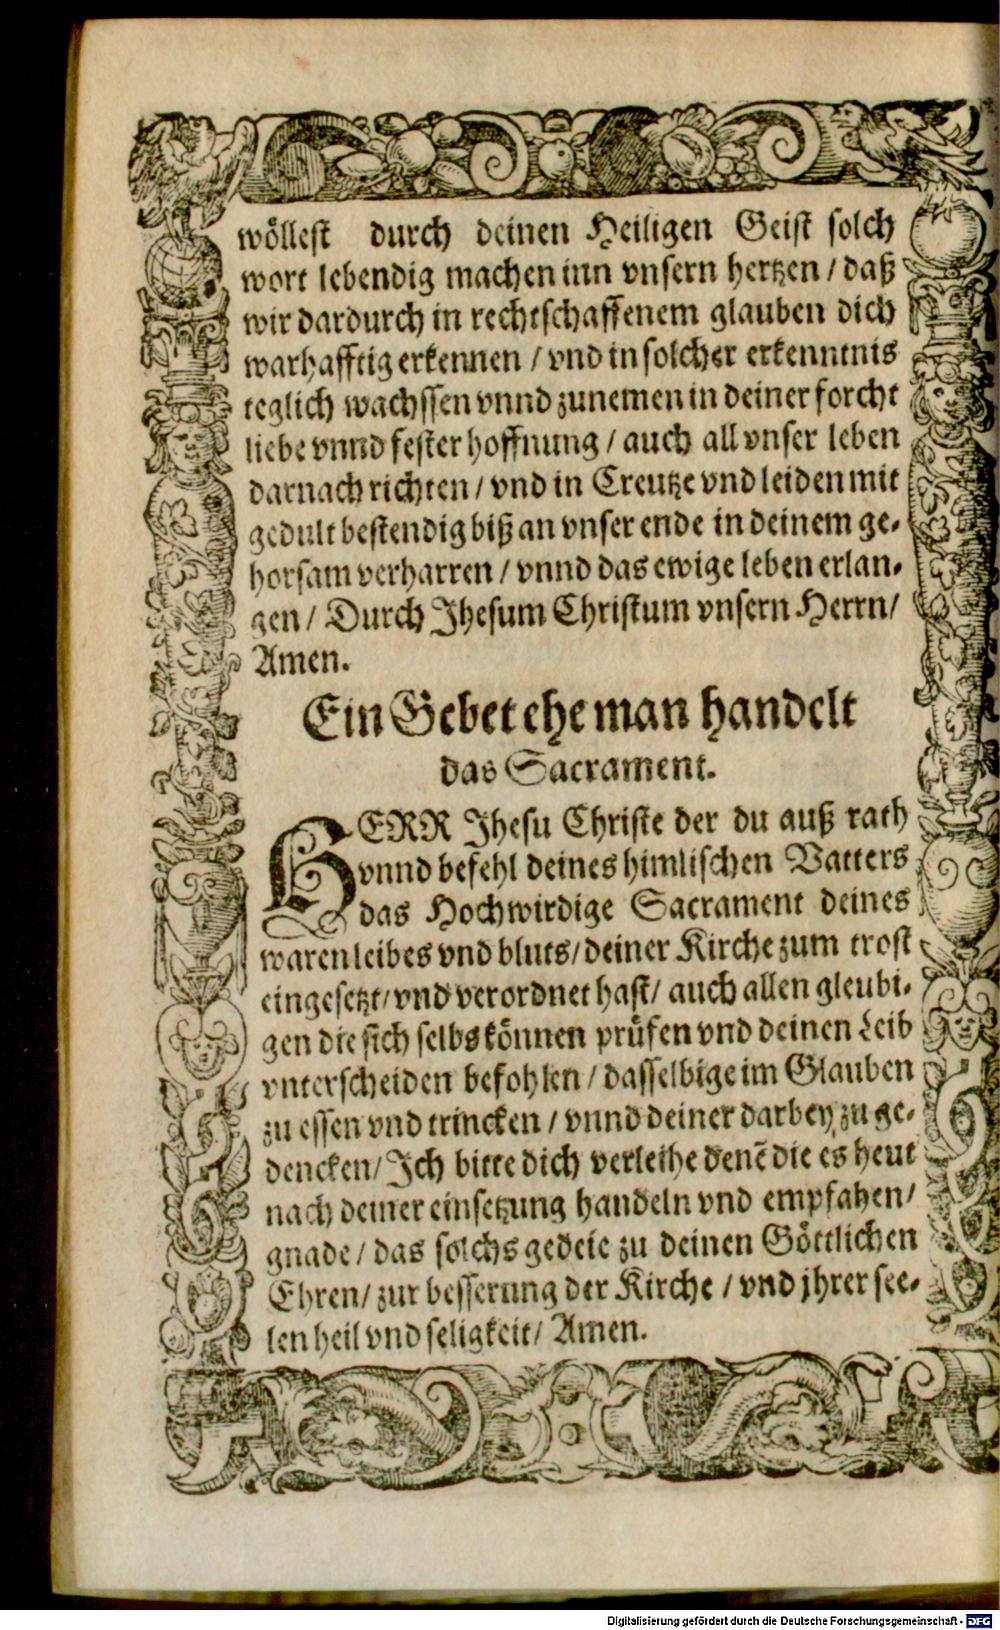 wöllest durch deinen Heiligen Geist solch
wort lebendig machen inn vnsern hertzen / daß
wir dardurch in rechtschaffenem glauben dich
warhafftig erkennen / vnd in solcher erkenntnis
teglich wachssen vnnd zunemen in deiner forcht
liebe vnnd fester hoffnung / auch all vnser leben
darnach richten / vnd in Creutze vnd leiden mit
gedult bestendig biß an vnser ende in deinem ge-
horsam verharren / vnnd das ewige leben erlan-
gen / Durch Jhesum Christum vnsern Herrn /
Amen.
Ein Gebet ehe man handelt
das Sacrament.
HERR Jhesu Christe der du auß rath
vnnd befehl deines himlischen Vatters
das Hochwirdige Sacrament deines
waren leibes vnd bluts / deiner Kirche zum trost
eingesetzt / vnd verordnet hast / auch allen gleubi-
gen die sich selbs können prüfen vnd deinen Leib
vnterscheiden befohlen / dasselbige im Glauben
zu essen vnd trincken / vnnd deiner darbey zu ge-
dencken / Ich bitte dich verleihe denē die es heut
nach deiner einsetzung handeln vnd empfahen /
gnade / das solchs gedeie zu deinen Göttlichen
Ehren / zur besserung der Kirche / vnd jhrer see-
len heil vnd seligkeit / Amen.
Digitalisierung gefördert durch die Deutsche Forschungsgemeinschaft - DFG